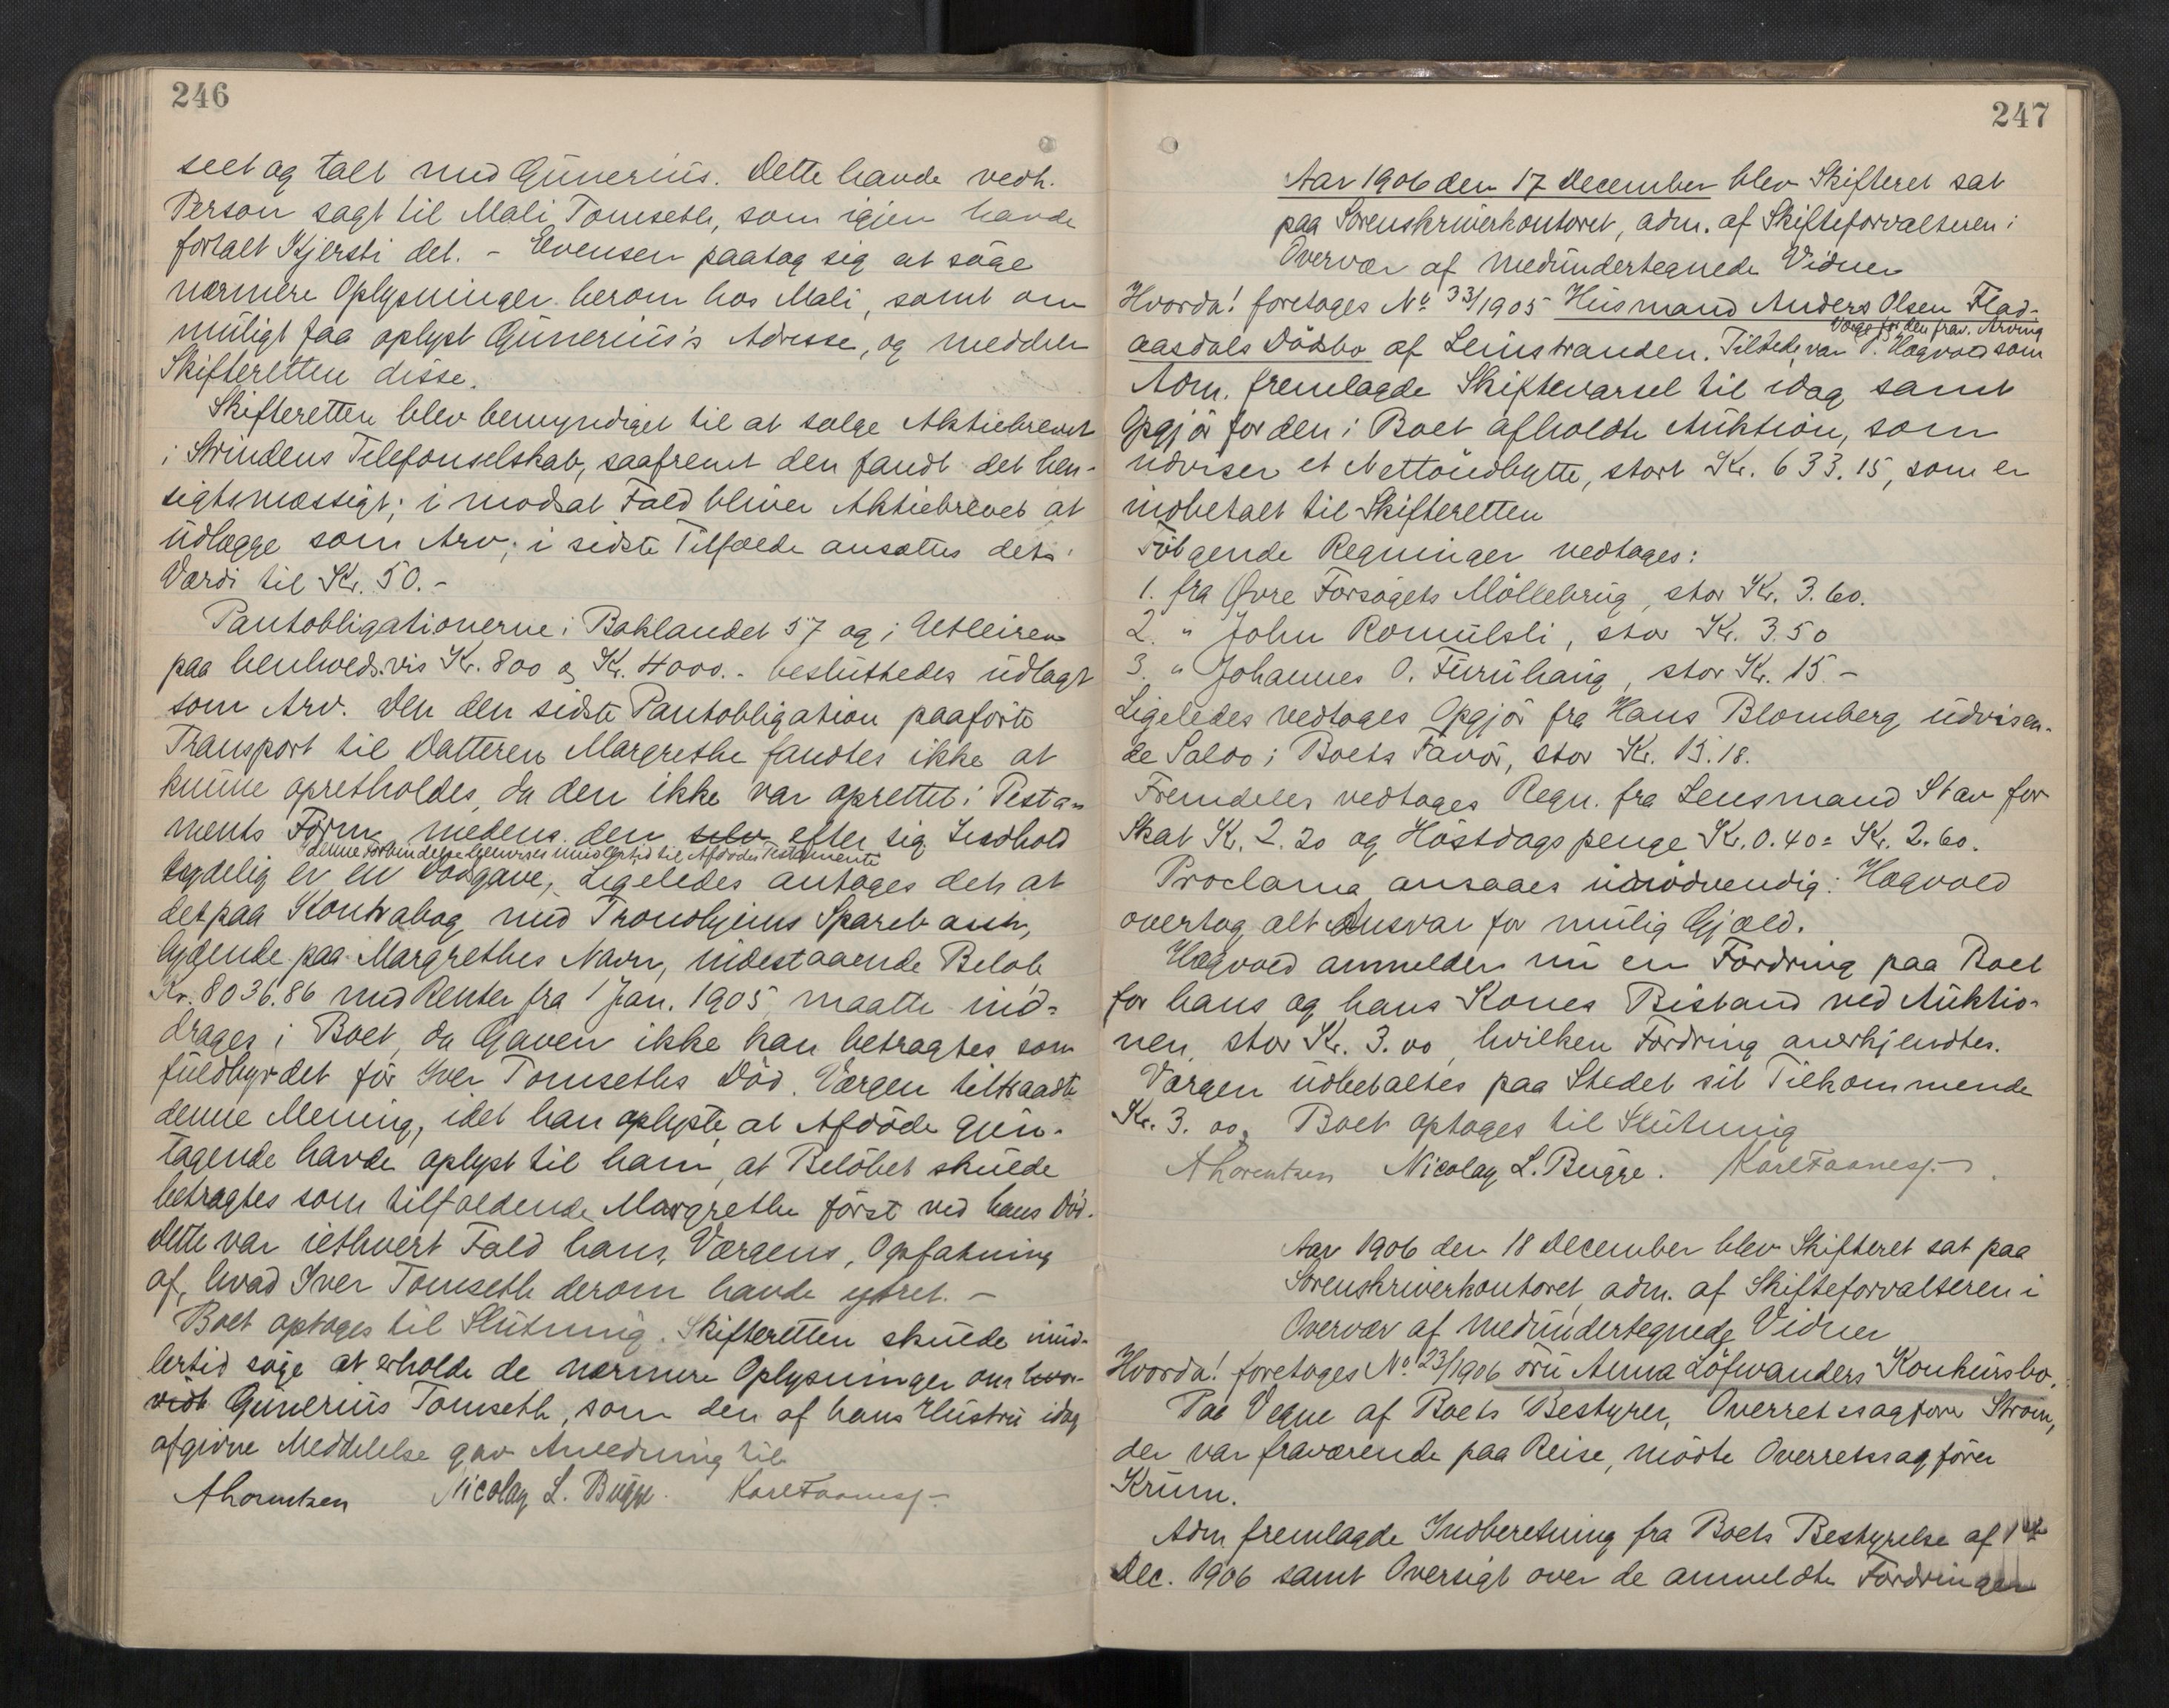 246
seet og talt med Günerius. Dette havde vedk.
Person sagt til Mali Tomseth, som igjen havde
fortalt Kjersti det. - Evensen paatog sig at söge
nærmere Oplysninger herom hos Mali, samt om
müligt faa oplyst Günerius's Adresse, og meddele
Skifteretten disse.
Skifteretten blev bemyndiget til at sælge Aktiebrevet
i Strindens Telefonselskab, saafremt den fandt det hen-
sigtsmæssigt; i modsat Fald bliver Aktiebrevet at
üdlægge som Arv; i sidste Tilfælde ansattes dets
Værdi til Kr. 50.-
Pantobligationerne i Baklandet 57 og i
paa henholdsvis Kr. 800 og Kr. 4000.- beslüttedes üdlagt
som Arv. Den den sidste Pantobligation paaförte
Transport til Datteren Margrethe fandtes ikke at
künne opretholdes, da den ikke var oprettet i Testa-
ments Form, medens den selv efter sig Indhold
denne Forbindelse henvises imidlertid til Afdödes Testamente
tydelig er en Dödsgave, Ligeledes antages det at
det paa Kontrabog med Trondhjems Sparebank,
lydende paa Margrethes Navn, indestaaende Belöb
Kr. 8036.86 med Renter fra 1 Jan. 1905 maatte ind-
drages i Boet, da Gaven ikke kan betragtes som
füldbyrdet för Iver Tomseths Död. Værgen tiltraadte
denne Mening, idet han oplyste, at Afdöde gjen-
tagende havde oplyst til ham, at Belöbet skülde
betragtes som tilfaldende Margrethe först ved hans Död.
Dette var iethvert Fald hans, Værgens, Opfatning
af, hvad Iver Tomseth derom havde ytret. -
Boet optages til Slütning. Skifteretten skülde imid-
lertid söge at erholde de nærmere Oplysninger om hvor-
vidt Günerius Tomseth, som den af hans Hüstrü idag
afgivne Meddelelse gav Anledning til
ALorentzen Nicolay L. Bügge. Karl Faanesj.
247
Aar 1906 den 17 December blev Skifteret sat
paa Sorenskriverkontoret, adm. af Skifteforvalteren i
Overvær af medündertegnede Vidner
Hvorda! foretoges No 33/1905 Hüsmand Anders Olsen Flad-
Værge for den frav. Arving
aasdals Dödsbo af Leinstranden. Tilstede var P. Hagvold som
Adm. fremlagde Skiftevarsel til idag samt
Opgjör for den i Boet afholdte Aüktion, som
üdviser et Nettoüdbytte, stort Kr. 633.15, som er
indbetalt til Skifteretten
Fölgende Regninger vedtages:
1. fra Øvre Forsögets Möllebrüg, stor Kr. 3.60.
2. " John Romülsli, stor Kr. 3.50
3. " Johannes O. Fürühaüg, stor Kr. 15.-
Ligeledes vedtoges Opgjör fra Hans Blomberg, üdvisen-
de Saldo i Boets Favör, stor Kr. 15.18.
Fremdeles vedtoges Regn. fra Lensmand Stav for
Skat Kr. 2.20 og Höstdagspenge Kr. 0.40 = Kr. 2.60.
Proclama ansaaes ünödvendig: Hagvold
overtog alt Ansvar for mülig Gjæld.
Hagvold anmelder nü en Fordring paa Boet
for hans og hans Kones Bistand ved Aüktio-
nen, stor Kr. 3.00, hvilken Fordring anerkjendtes.
Værgen üdbetaltes paa Stedet sit Tilkommende
Kr. 3.00. Boet optages til Slütning
ALorentzen Nicolay L. Bügge. Karl Faanesj.
Aar 1906 den 18 December blev Skifteret sat paa
Sorenskriverkontoret, adm. af Skifteforvalteren i
Overvær af medündertegnede Vidner
Hvorda! foretoges No 23/1906 Frü Anna Löfwanders Konkürsbo.
Paa Vegne af Boets Bestyrer, Overretssagförer Ström,
der var fraværende paa Reise, mödte Overretssagförer
Krüm.
Adm. fremlagde Indberetning fra Boets Bestyrelse af 1ste
Dec. 1906 samt Oversigt over de anmeldte Fordringer